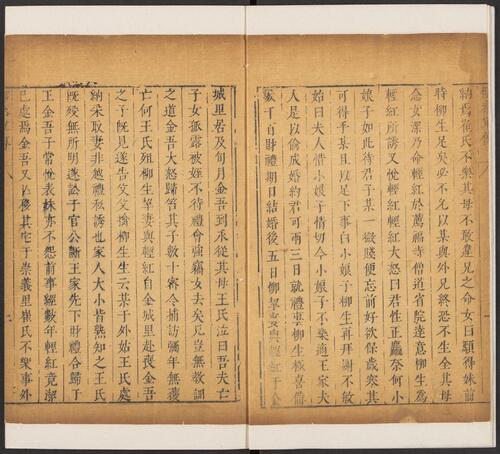 納焉崔氏不樂其母不敢違兄之命女曰願得妹前
時柳生足矣必不允以某與外兄終恐不生全其母
念女深乃命輕紅於薦福寺僧道省院達意柳生為
輕紅所誘又悅輕紅輕紅大怒曰君性正麤奈何小
娘子如此待君子某一微賤便忘前好欲保歲寒其
可得乎某且以足下事白小娘子柳生再拜謝不敏
始曰夫人惜小娘子情切今小娘子不樂適王家夫
人是以偷成婚約君可兩三日就禮事柳生極喜備
數千百財禮期日結婚後五日柳挈妻與輕紅于金
城里居及旬月金吾到永從其母王氏泣曰吾夫亡
子女孤露被姪不待禮會強竊女去矣兄豈無教訓
之道金吾大怒歸笞其子數十密令捕訪彌年無獲
亡何王氏殂柳生挈妻與輕紅自金城里赴喪金吾
之子既見遂告父父擒柳生生云某于外姑王氏處
納采取妻非越禮私誘也家人大小皆熟知之王氏
既歿無所明遂訟于官公斷王家先下財禮合歸于
王金吾子常悅表妹亦不怨前事經數年輕紅竟潔
己處焉金吾又亡移其宅于崇義里崔氏不樂事外